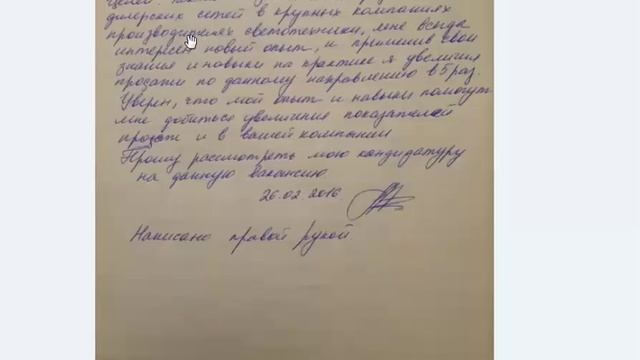 дилерских сетей в крупных компаниях
производителях светотехники, мне всегда
интересен новый опыт, и применив свои
знания и навыки на практике я увеличил
продажи по данному направлению в 5 раз.
Уверен, что мой опыт и навыки помогут
мне добиться увеличения показателей
продаж и в вашей компании
Прошу рассмотреть мою кандидатуру
на данную вакансию
26.02.2016
Написано правой рукой